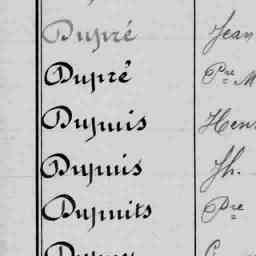 Dupré Jean
Dupré Pre M
Dupuis Henr
Dupuis Jh.
Dupuits Pre